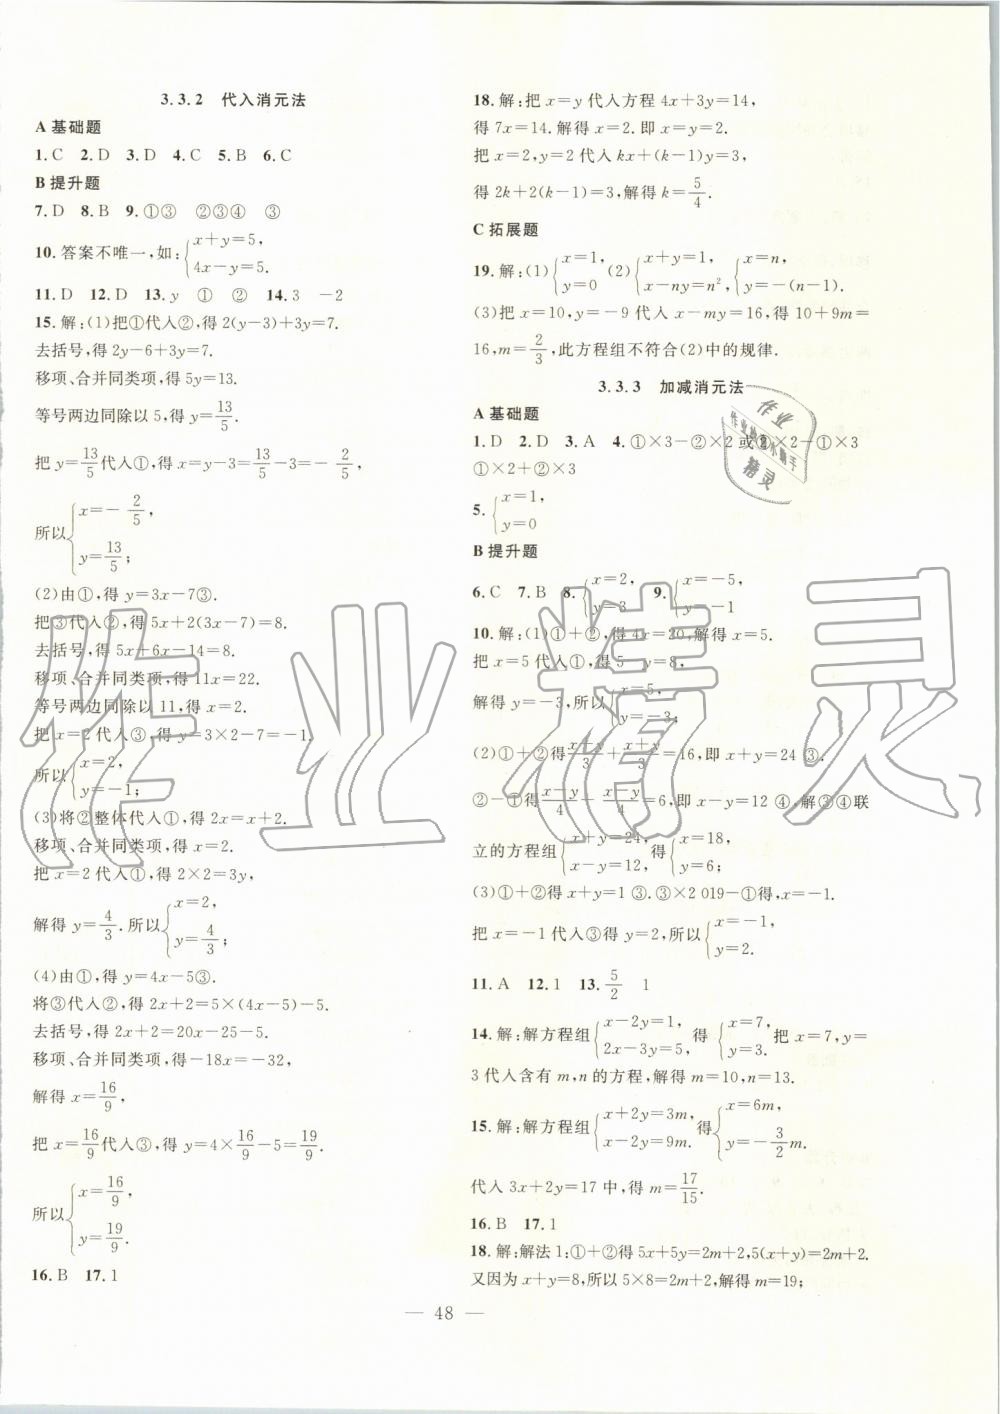 3.3.2 代入消元法
A 基础题
1. C 2. D 3. D 4. C 5. B 6. C
B 提升题
7. D 8. B 9. ①③ ②③④ ③
10. 答案不唯一,如:{x+y=5, 4x-y=5.
11. D 12. D 13. y ① ② 14. 3 -2
15. 解:(1)把①代入②,得 2(y-3)+3y=7.
去括号,得 2y-6+3y=7.
移项、合并同类项,得 5y=13.
等号两边同除以 5,得 y=13/5.
把 y=13/5 代入①,得 x=y-3=13/5-3=-2/5,
所以{x=-2/5, y=13/5;
(2)由①,得 y=3x-7③.
把③代入②,得 5x+2(3x-7)=8.
去括号,得 5x+6x-14=8.
移项、合并同类项,得 11x=22.
等号两边同除以 11,得 x=2.
把 x=2 代入③,得 y=3×2-7=-1.
所以{x=2, y=-1;
(3)将②整体代入①,得 2x=x+2.
移项、合并同类项,得 x=2.
把 x=2 代入①,得 2×2=3y,
解得 y=4/3. 所以{x=2, y=4/3;
(4)由①,得 y=4x-5③.
将③代入②,得 2x+2=5×(4x-5)-5.
去括号,得 2x+2=20x-25-5.
移项、合并同类项,得-18x=-32,
解得 x=16/9,
把 x=16/9 代入③,得 y=4×16/9-5=19/9.
所以{x=16/9, y=19/9.
16. B 17. 1
18. 解:把 x=y 代入方程 4x+3y=14,
得 7x=14. 解得 x=2. 即 x=y=2.
把 x=2,y=2 代入 kx+(k-1)y=3,
得 2k+2(k-1)=3,解得 k=5/4.
C 拓展题
19. 解:(1){x=1, y=0 (2){x+y=1, x-ny=n², {x=n, y=-(n-1).
(3)把 x=10,y=-9 代入 x-my=16,得 10+9m=
16,m=2/3,此方程组不符合(2)中的规律.
3.3.3 加减消元法
A 基础题
1. D 2. D 3. A 4. ①×3-②×2 或②×2-①×3
①×2+②×3
5. {x=1, y=0
B 提升题
6. C 7. B 8. {x=2, y=3 9. {x=-5, y=-1
10. 解:(1)①+②,得 4x=20,解得 x=5.
把 x=5 代入①,得 5-y=8,
解得 y=-3,所以{x=5, y=-3;
(2)①+②得(x+y)/3+(x+y)/3=16,即 x+y=24 ③.
②-①得(x-y)/4+(x-y)/4=6,即 x-y=12 ④,解③④联
立的方程组{x+y=24, x-y=12, 得{x=18, y=6;
(3)①+②得 x+y=1 ③.③×2 019-①得,x=-1.
把 x=-1 代入③得 y=2,所以{x=-1, y=2.
11. A 12. 1 13. 5/2 1
14. 解:解方程组{x-2y=1, 2x-3y=5, 得 {x=7, y=3. 把 x=7,y=
3 代入含有 m,n 的方程,解得 m=10,n=13.
15. 解:解方程组{x+2y=3m, x-2y=9m. 得{x=6m, y=-3/2m.
代入 3x+2y=17 中,得 m=17/15.
16. B 17. 1
18. 解:解法 1:①+②得 5x+5y=2m+2,5(x+y)=2m+2.
又因为 x+y=8,所以 5×8=2m+2,解得 m=19;
— 48 —
作业精灵
作业
精灵